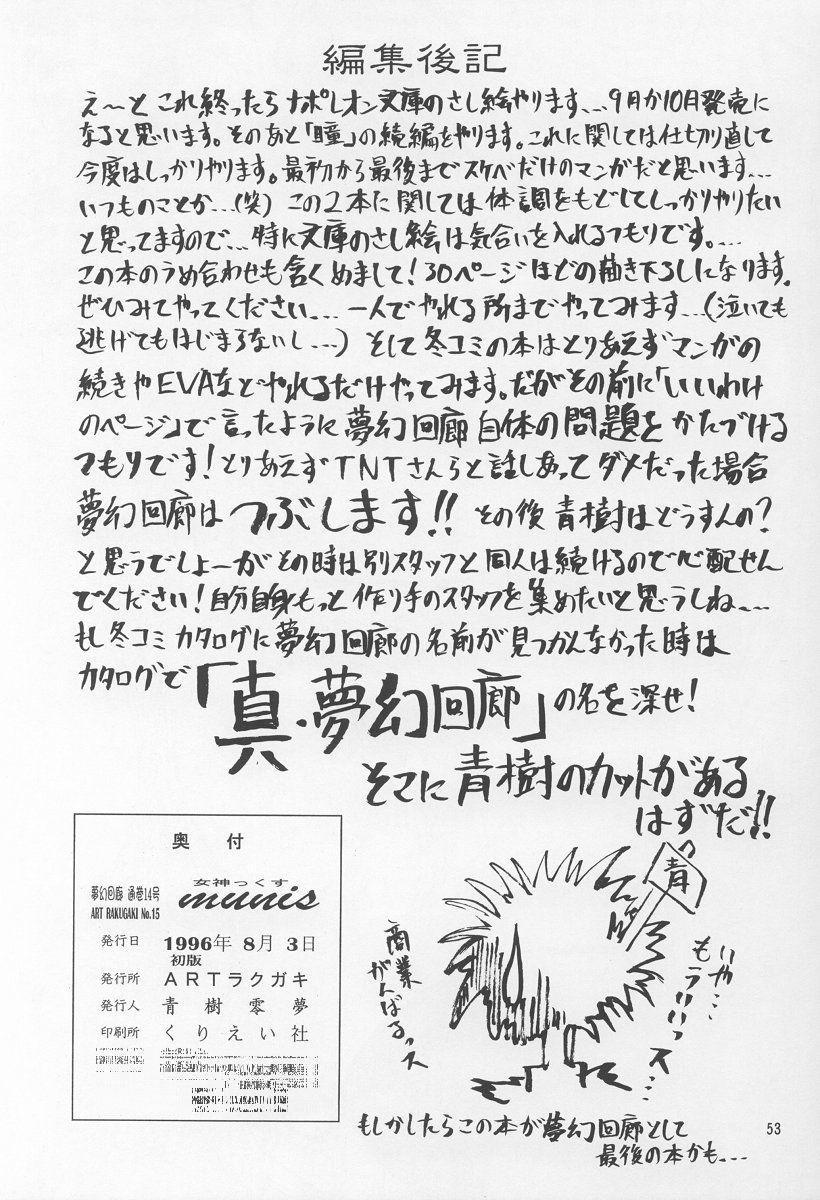 編集後記
え〜と これ終ったら ナポレオン文庫のさし絵やります...9月か10月発売に
なると思います。そのあと「瞳」の続編をやります。これに関しては仕切り直して
今度はしっかりやります。最初から最後までスケベだけのマンガだと思います...
いつものことか...(笑) この2本に関しては体調をもどしてしっかりやりたい
と思ってますので...特に文庫のさし絵は気合いを入れるつもりです。...
この本のうめ合わせも含くめまして!30ページほどの描き下ろしになります。
ぜひみてやってください...一人でやれる所までやってみます...(泣いても
逃げてもはじまらないし...) そして冬コミの本はとりあえずマンガの
続きやEVAなどやれるだけやってみます。だがその前に「いいわけ
のページ」で言ったように夢幻回廊自体の問題をかたづける
つもりです!とりあえずTNTさんらと話しあってダメだった場合
夢幻回廊はつぶします!!その後青樹はどうすんの?
と思うでしょーがその時は別スタッフと同人は続けるので心配せん
でください!自分自身もっと作り手のスタッフを集めたいと思うしね...
もし冬コミカタログに夢幻回廊の名前が見つかんなかった時は
カタログで「真・夢幻回廊」の名を深せ!
そこに青樹のカットがある
はずだ!!
奥付
夢幻回廊 通巻14号
ART RAKUGAKI No.15
女神っくす
munis
発行日 1996年 8月 3日
初版
発行所 ARTラクガキ
発行人 青樹零夢
印刷所 くりえい社
青
商業
がんばるっス
いや...
もういいっス...
もしかしたらこの本が夢幻回廊として
最後の本かも...
53